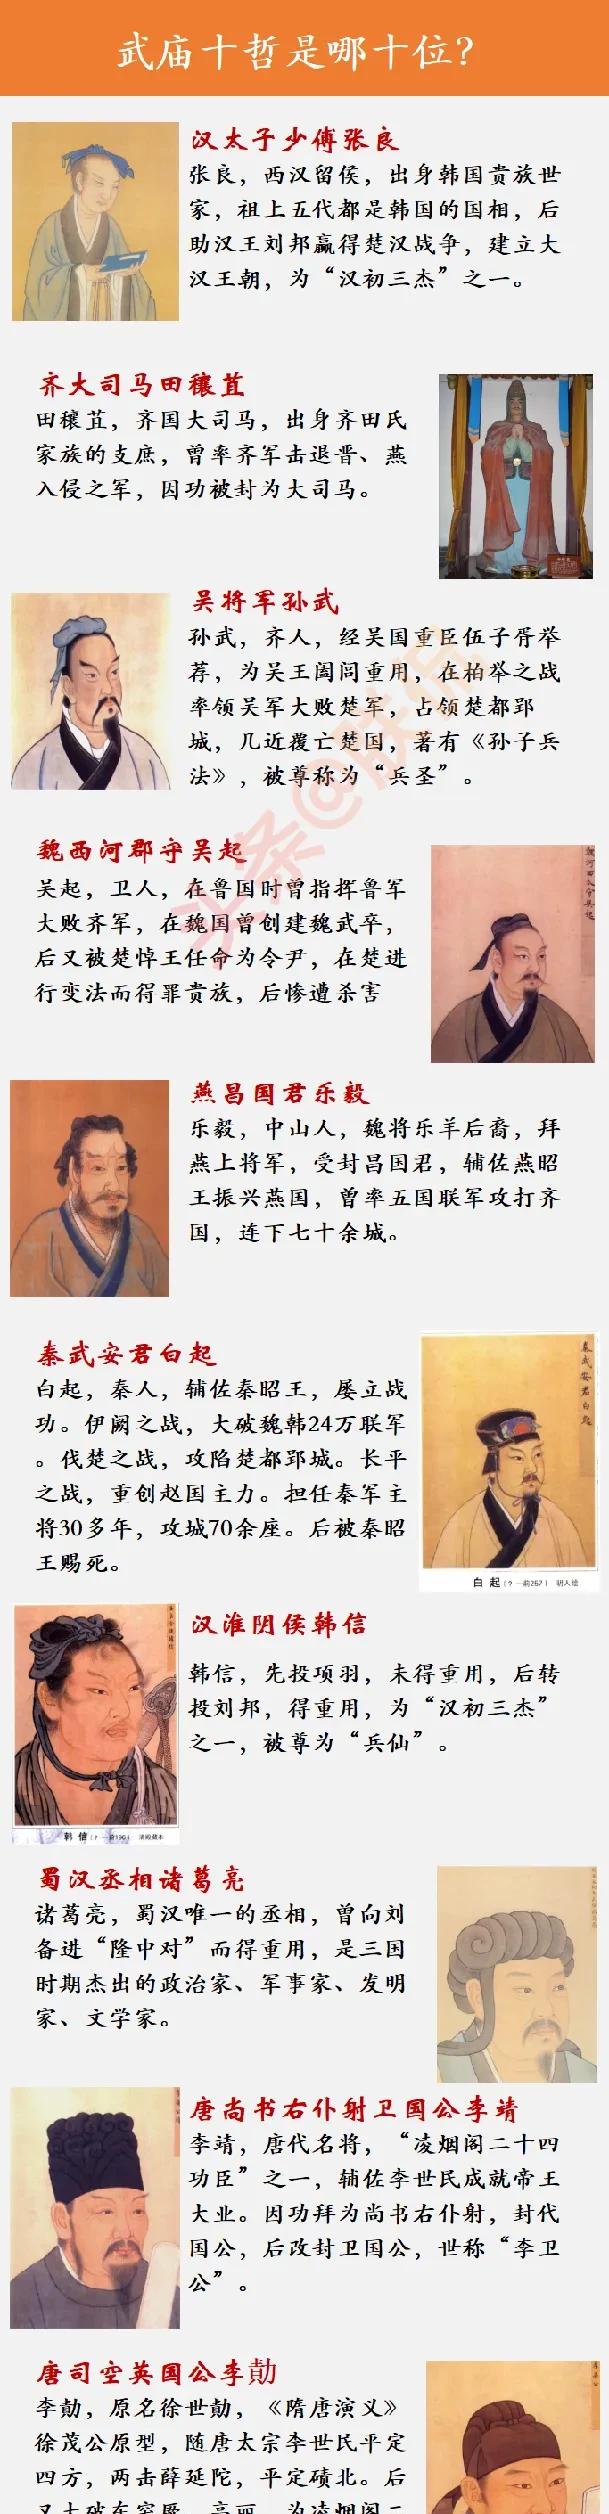 武庙十哲是哪十位?
汉太子少傅张良
张良，西汉留侯，出身韩国贵族世
家，祖上五代都是韩国的国相，后
助汉王刘邦赢得楚汉战争，建立大
汉王朝，为“汉初三杰”之一。
齐大司马田穰苴
田穰苴，齐国大司马，出身齐田氏
家族的支庶，曾率齐军击退晋、燕
入侵之军，因功被封为大司马。
吴将军孙武
孙武，齐人，经吴国重臣伍子胥举
荐，为吴王阖闾重用，在柏举之战
率领吴军大败楚军，占领楚都郢
城，几近覆亡楚国，著有《孙子兵
法》，被尊称为“兵圣”。
魏西河郡守吴起
吴起，卫人，在鲁国时曾指挥鲁军
大败齐军，在魏国曾创建魏武卒，
后又被楚悼王任命为令尹，在楚进
行变法而得罪贵族，后惨遭杀害
头条@
燕昌国君乐毅
乐毅，中山人，魏将乐羊后裔，拜
燕上将军，受封昌国君，辅佐燕昭
王振兴燕国，曾率五国联军攻打齐
国，连下七十余城。
秦武安君白起
白起，秦人，辅佐秦昭王，屡立战
功。伊阙之战，大破魏韩24万联军
。伐楚之战，攻陷楚都郢城。长平
之战，重创赵国主力。担任秦军主
将30多年，攻城70余座。后被秦昭
王赐死。
秦武安君白起
白 起（？—前257） 明人绘
汉淮阴侯韩信
韩信，先投项羽，未得重用，后转
投刘邦，得重用，为“汉初三杰”
之一，被尊为“兵仙”。
韩 信（？—前196） 清殿藏本
蜀汉丞相诸葛亮
诸葛亮，蜀汉唯一的丞相，曾向刘
备进“隆中对”而得重用，是三国
时期杰出的政治家、军事家、发明
家、文学家。
唐尚书右仆射卫国公李靖
李靖，唐代名将，“凌烟阁二十四
功臣”之一，辅佐李世民成就帝王
大业。因功拜为尚书右仆射，封代
国公，后改封卫国公，世称“李卫
公”。
唐司空英国公李勣
李勣，原名徐世勣，《隋唐演义》
徐茂公原型，随唐太宗李世民平定
四方，两击薛延陀，平定碛北。后
又大破东突厥、高丽，为凌烟阁二